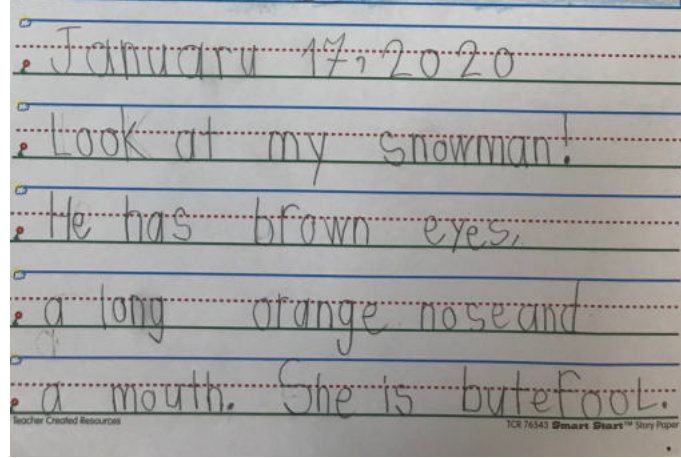 January 17, 2020
Look at my snowman!
He has brown eyes,
a long orange nose and
a mouth. She is butefool.
Teacher Created Resources
TCR 76543 Smart Start™ Story Paper